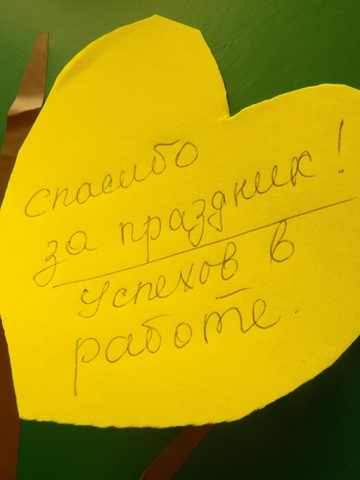 спасибо
за праздник!
Успехов в
работе.